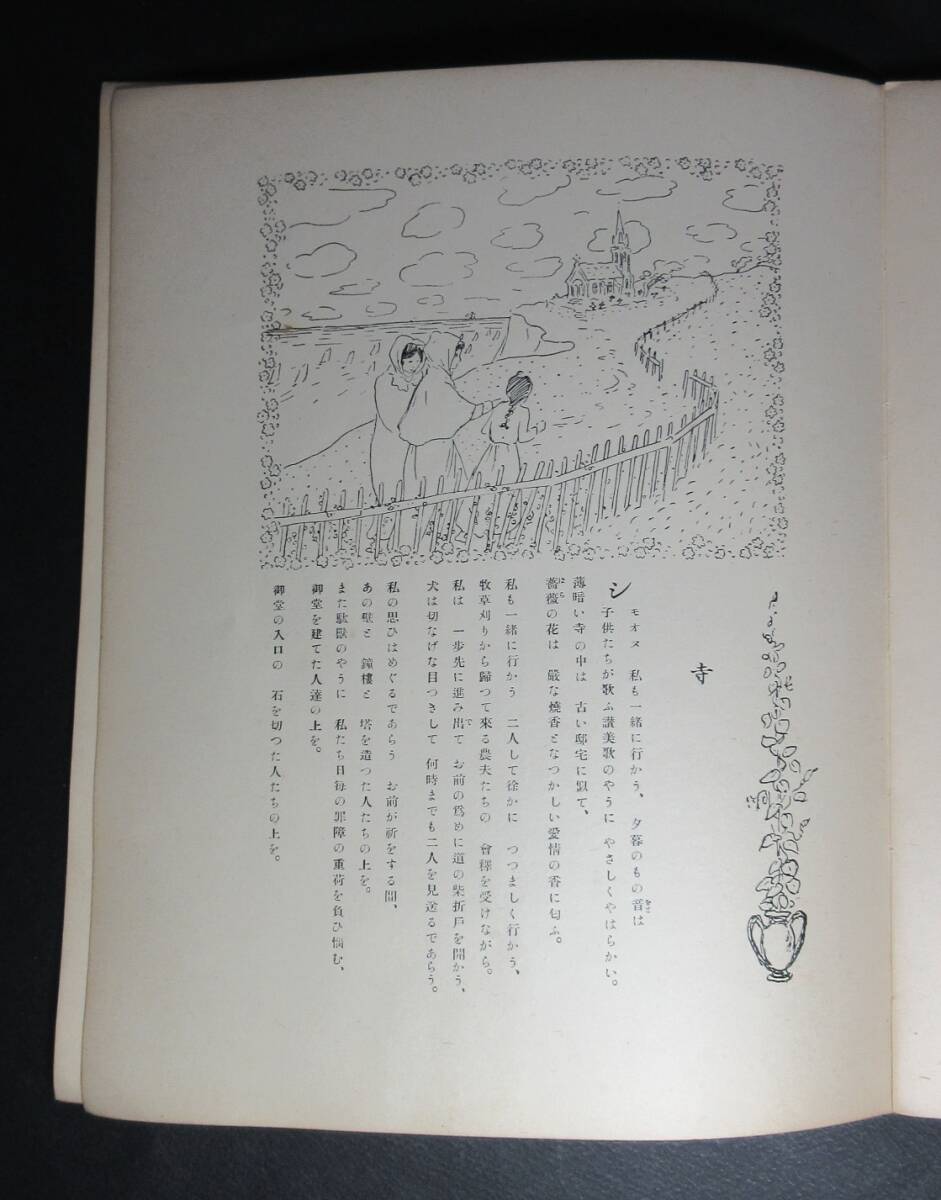 寺
シモオヌ　私も一緒に行かう、　夕暮のもの音は
子供たちが歌ふ讃美歌のやうに　やさしくやはらかい。
薄暗い寺の中は　古い邸宅に似て、
薔薇の花は　厳な焼香となつかしい愛情の香に匂ふ。
私も一緒に行かう　二人して徐かに　つつましく行かう、
牧草刈りから歸つて來る農夫たちの　會釋を受けながら。
私は　一歩先に進み出て　お前の爲めに道の柴折戸を開かう、
犬は切なげな目つきして　何時までも二人を見送るであらう。
私の思ひはめぐるであらう　お前が祈をする間、
あの壁と　鐘樓と　塔を造つた人たちの上を。
また駄獣のやうに　私たち日毎の罪障の重荷を負ひ悩む、
御堂を建てた人達の上を。
御堂の入口の　石を切つた人たちの上を。